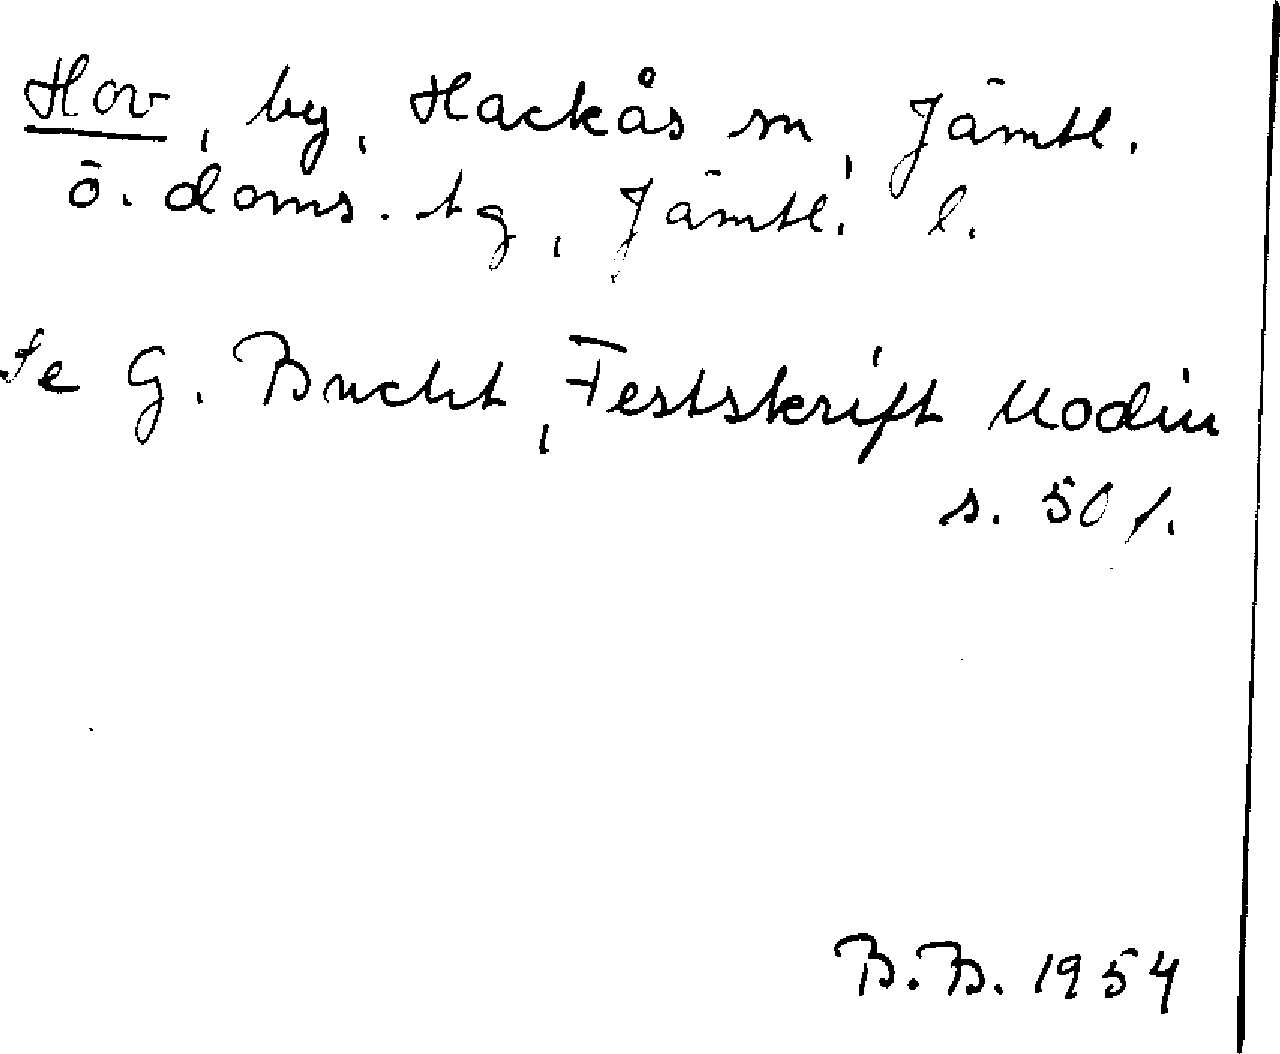 Hov, by, Hackås sn, Jämtl.
ö. doms. tg, Jämtl. l.
Se G. Bucht, Festskrift Modin
s. 50 f.
B.B. 1954